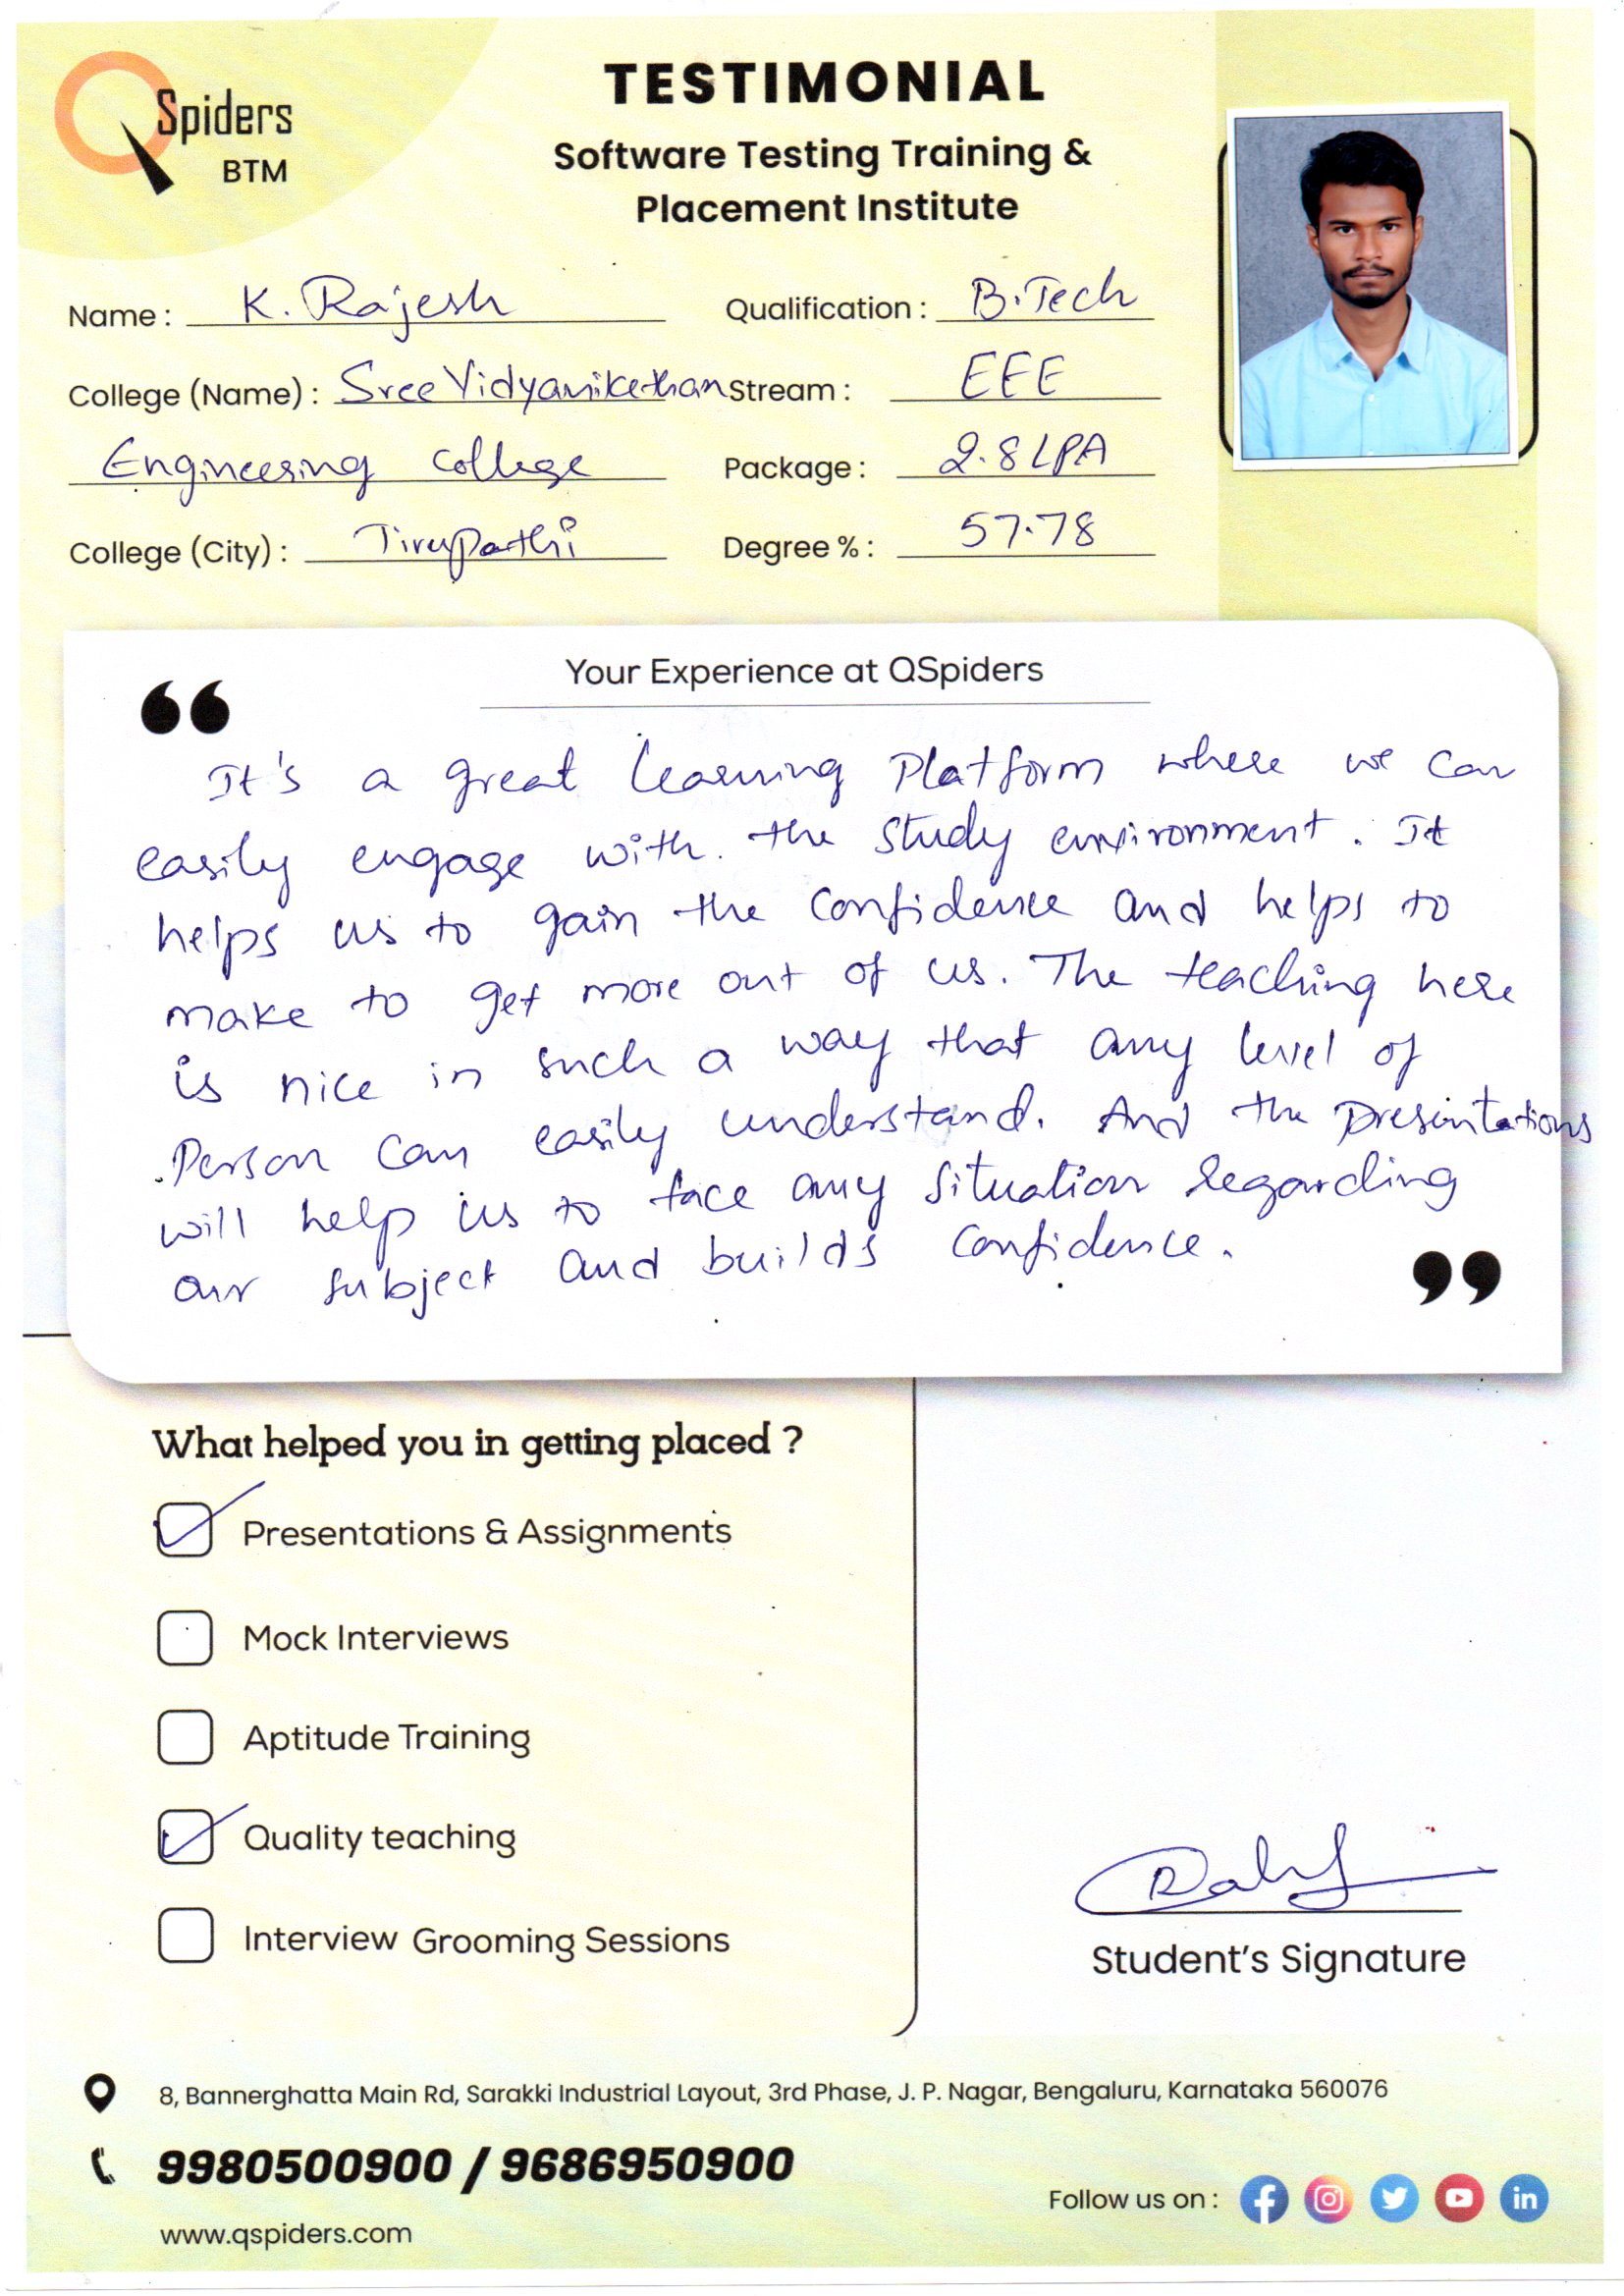 QSpiders
BTM
TESTIMONIAL
Software Testing Training &
Placement Institute
Name : K. Rajesh
Qualification : B.Tech
College (Name) : Sree Vidyanikethan
Stream : EEE
Engineering College
Package : 2.8 LPA
College (City) : Tirupathi
Degree % : 57.78
Your Experience at QSpiders
“
It's a great learning Platform where we can
easily engage with. the study environment. It
helps us to gain the confidence and helps to
make to get more out of us. The teaching here
is nice in such a way that any level of
Person can easily understand. And the presintations
will help us to face any situation regarding
our subject and builds confidence.
”
What helped you in getting placed ?
Presentations & Assignments
Mock Interviews
Aptitude Training
Quality teaching
Interview Grooming Sessions
Student’s Signature
8, Bannerghatta Main Rd, Sarakki Industrial Layout, 3rd Phase, J. P. Nagar, Bengaluru, Karnataka 560076
9980500900 / 9686950900
Follow us on :
www.qspiders.com